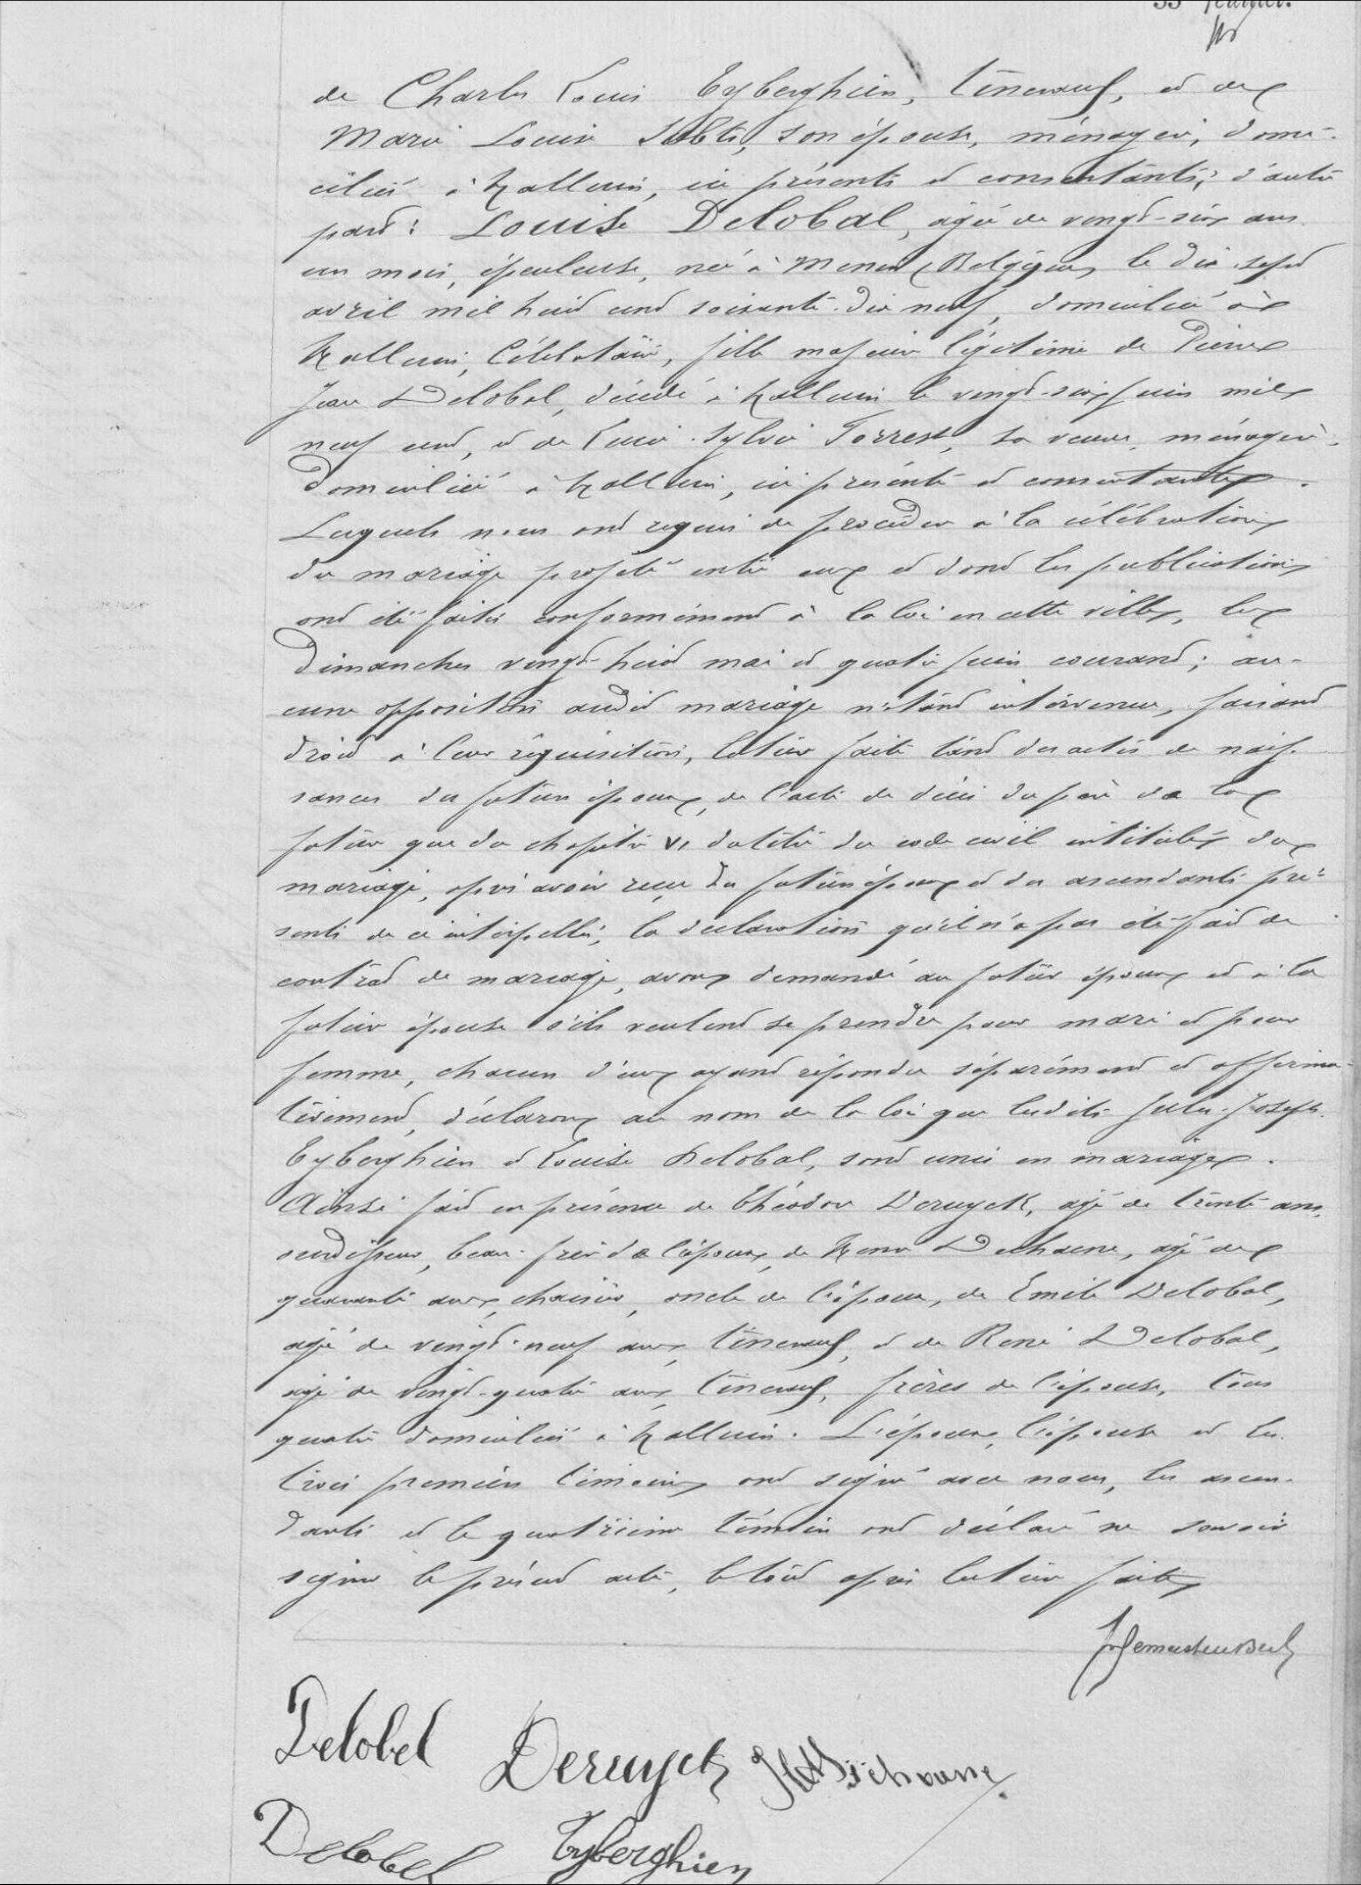 33 feuillet.
de Charles Louis Tyberghien, tisserand, et de
Marie Louise, son épouse, ménagère, domi-
ciliés à Halluin, ici présents et consentants; d'autre
part: Louise Delobal, âgée de vingt-six ans
un mois, épeuleuse, née à Menin (Belgique) le dix sept
avril mil huit cent soixante-dix neuf, domiciliée à
Halluin, célibataire, fille majeure légitime de Pierre
Jean Delobal, décédé à Halluin le vingt-six juin mil
neuf cent, et de Sylvie, sa veuve, ménagère,
domiciliée à Halluin, ici présente et consentante.
Lesquels nous ont requis de procéder à la célébration
du mariage projeté entre eux et dont les publications
ont été faites conformément à la loi en cette ville, les
Dimanches vingt-huit mai et quatre juin courant; au-
cune opposition audit mariage n'étant intervenue, faisant
droit à leur réquisition, lecture faite tant des actes de nais-
sances des futurs époux, de l'acte de décès du père de la
future que du chapitre VI du titre du code civil intitulé du
mariage, après avoir reçu des futurs époux et des ascendants pré-
sents de ce interpellés, la déclaration qu'il n'a pas été fait de
contrat de mariage, avons demandé au futur époux et à la
future épouse s'ils veulent se prendre pour mari et pour
femme, chacun d'eux ayant répondu séparément et affirma-
tivement, déclarons au nom de la loi que lesdits Jules-Joseph
Tyberghien et Louise Delobal, sont unis en mariage.
Ainsi fait en présence de Théodore Deruyck, âgé de trente ans,
ourdisseur, beau-frère de l'époux, de Henri Dechaene, âgé de
quarante ans, chaisier, oncle de l'époux, de Emile Delobal,
âgé de vingt-neuf ans, tisserand, et de René Delobal,
âgé de vingt-quatre ans, tisserand, frères de l'épouse, tous
quatre domiciliés à Halluin. L'époux, l'épouse et les
trois premiers témoins ont signé avec nous, les ascen-
dants et le quatrième témoin ont déclaré ne savoir
signer le présent acte, le tout après lecture faite
Delobel Deruyck
Delobel Tyberghien